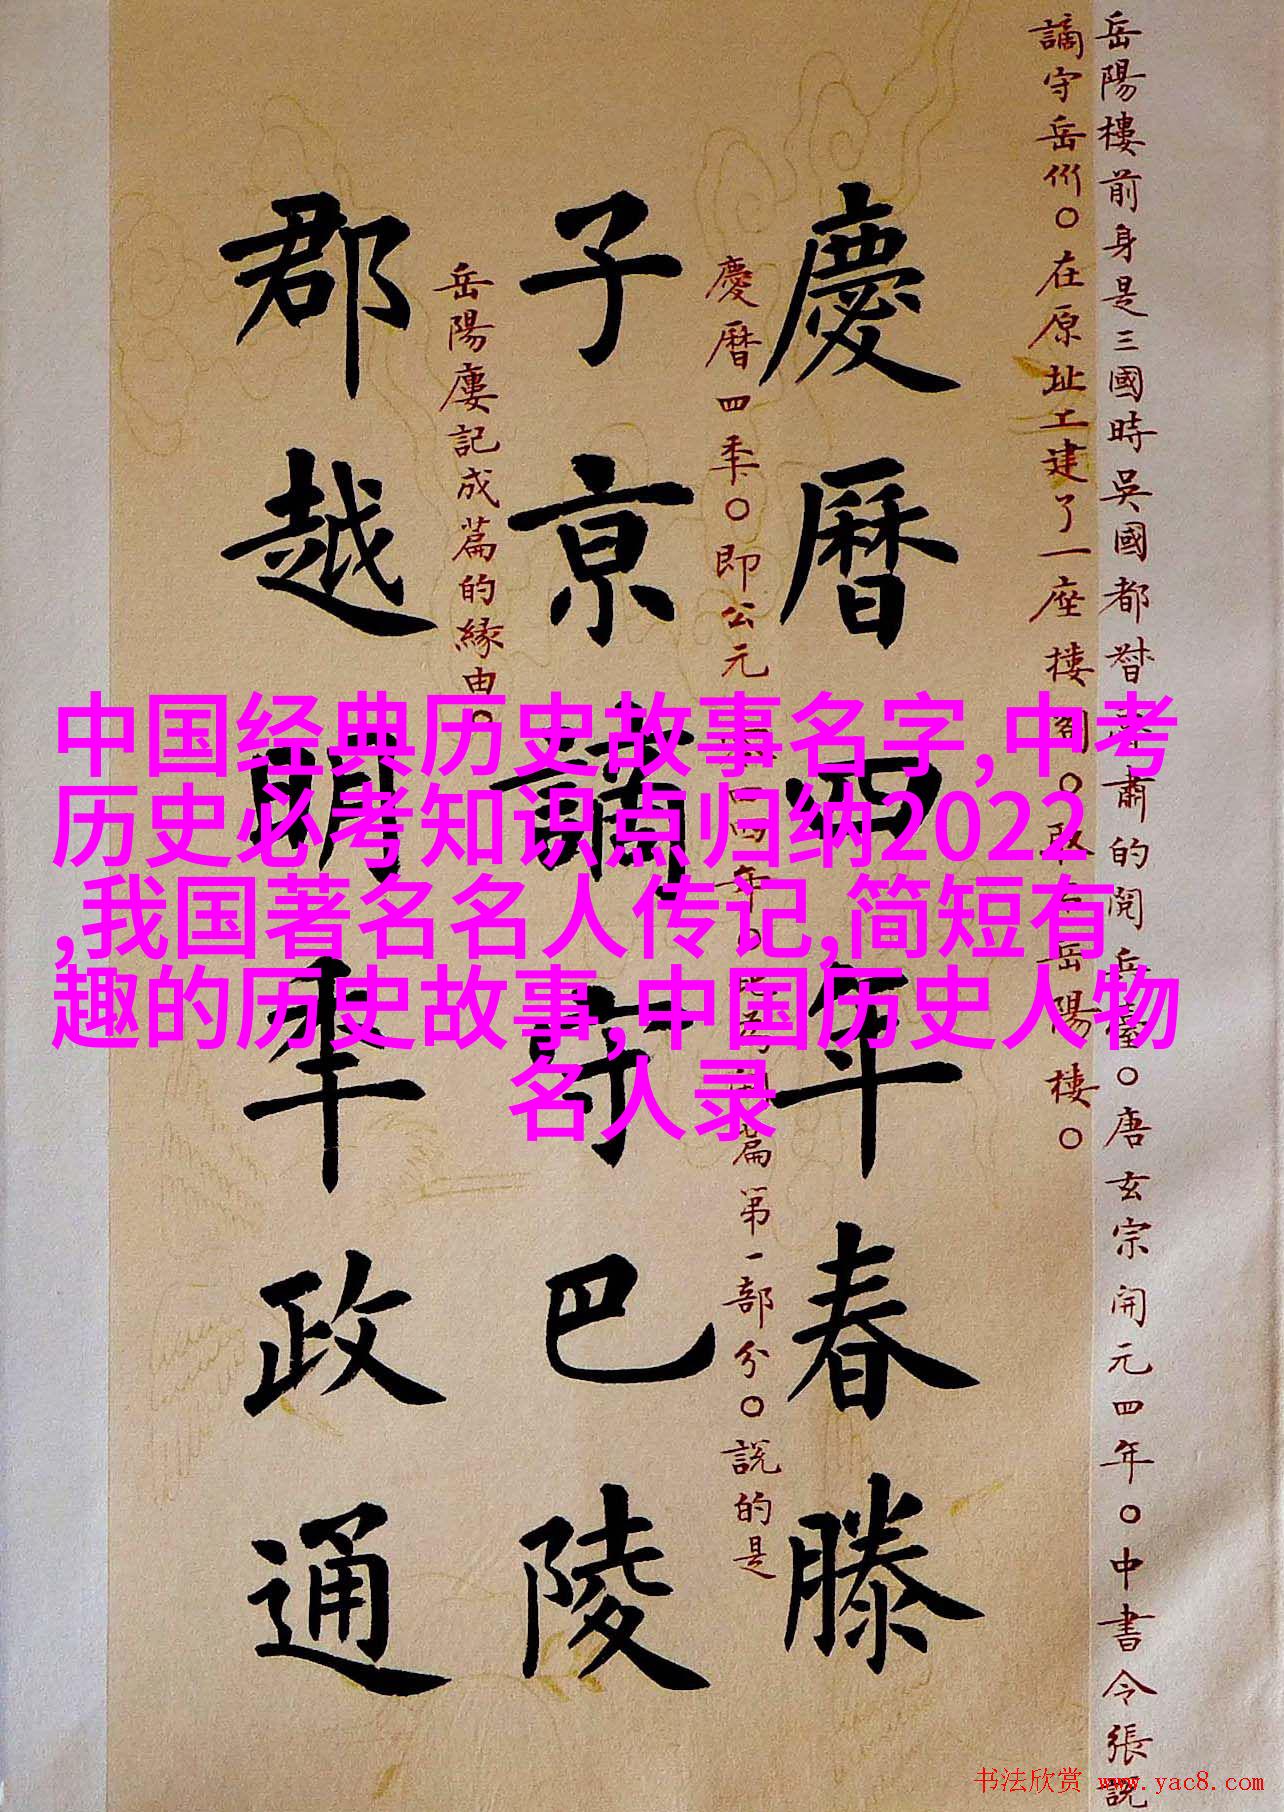 岳陽樓前身是三國時吳國都督魯肅的閱兵臺○唐玄宗開元四年○中書令張説
謫守岳州○在原址工建了一座樓閣○取名岳陽樓○
慶曆四年春滕
慶曆四年○即公元四四年○篇第一部分○説的是
子京謫守巴陵
岳陽樓記成篇的緣由○
郡越明年政通
中国经典历史故事名字,中考
历史必考知识点归纳2022
,我国著名名人传记,简短有
趣的历史故事,中国历史人物
名人录
书法欣赏 www.yac8.com